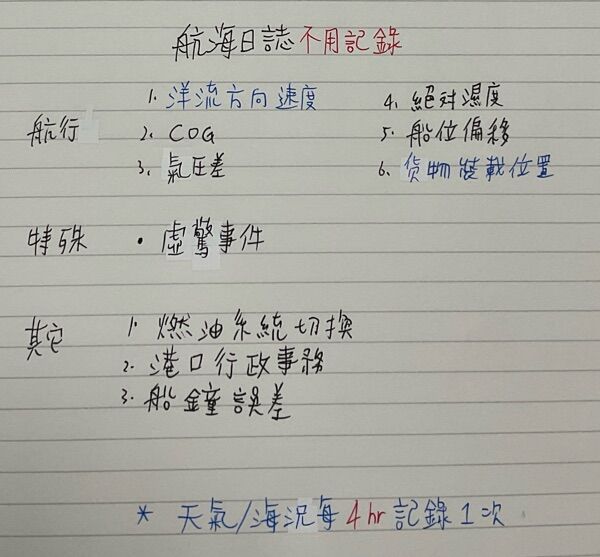 航海日誌不用記錄
航行
1. 洋流方向速度
2. COG
3. 氣压差
4. 絕对濕度
5. 船位偏移
6. 貨物裝載位置
特殊
• 虛驚事件
其它
1. 燃油系統切換
2. 港口行政事務
3. 船鐘誤差
* 天氣/海況每4hr記錄1次